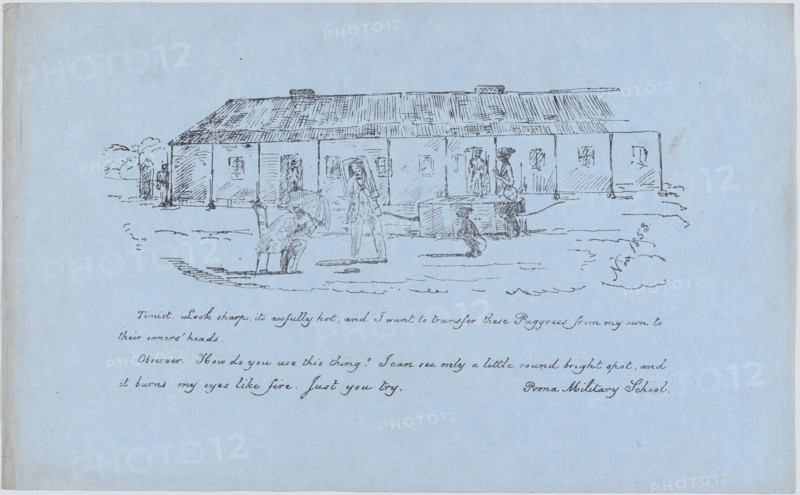 Nov 1858.
Timist. Look sharp, its awfully hot, and I want to transfer these Puggrees from my own to
their owners' heads.
Observer. How do you use this thing? I can see only a little round bright spot, and
it burns my eyes like fire. Just you try.
Poona Military School.
PHOTO12